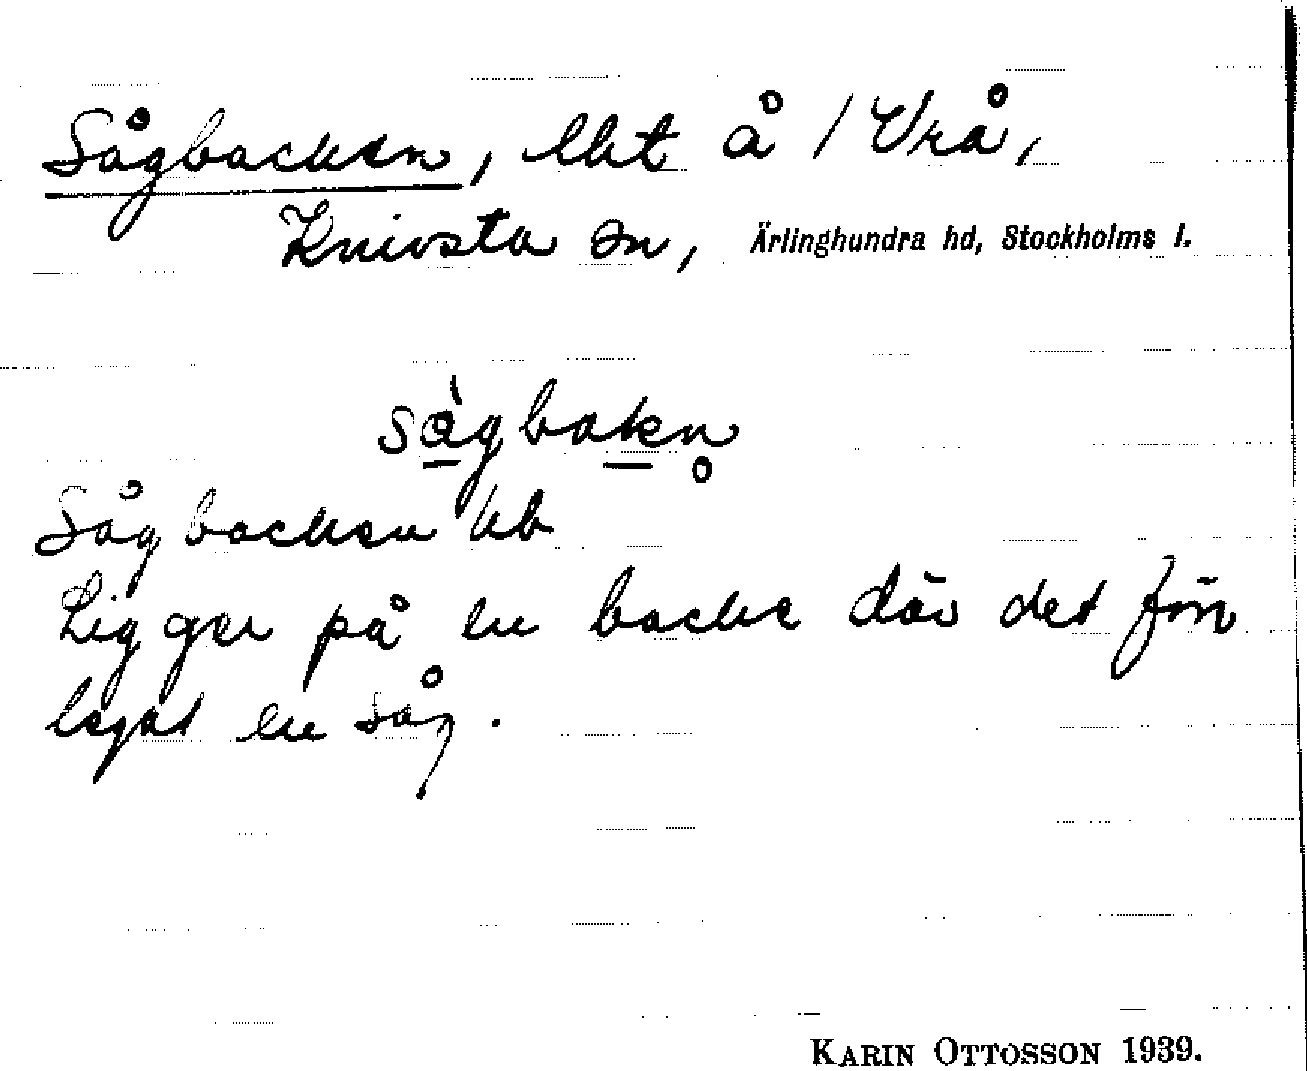 Sågbacken, lht å 1 Vrå,
Knivsta sn, Ärlinghundra hd, Stockholms l.
sågbakn̥
Sågbacken kb
Ligger på en backe där det förr
legat en såg.
KARIN OTTOSSON 1939.